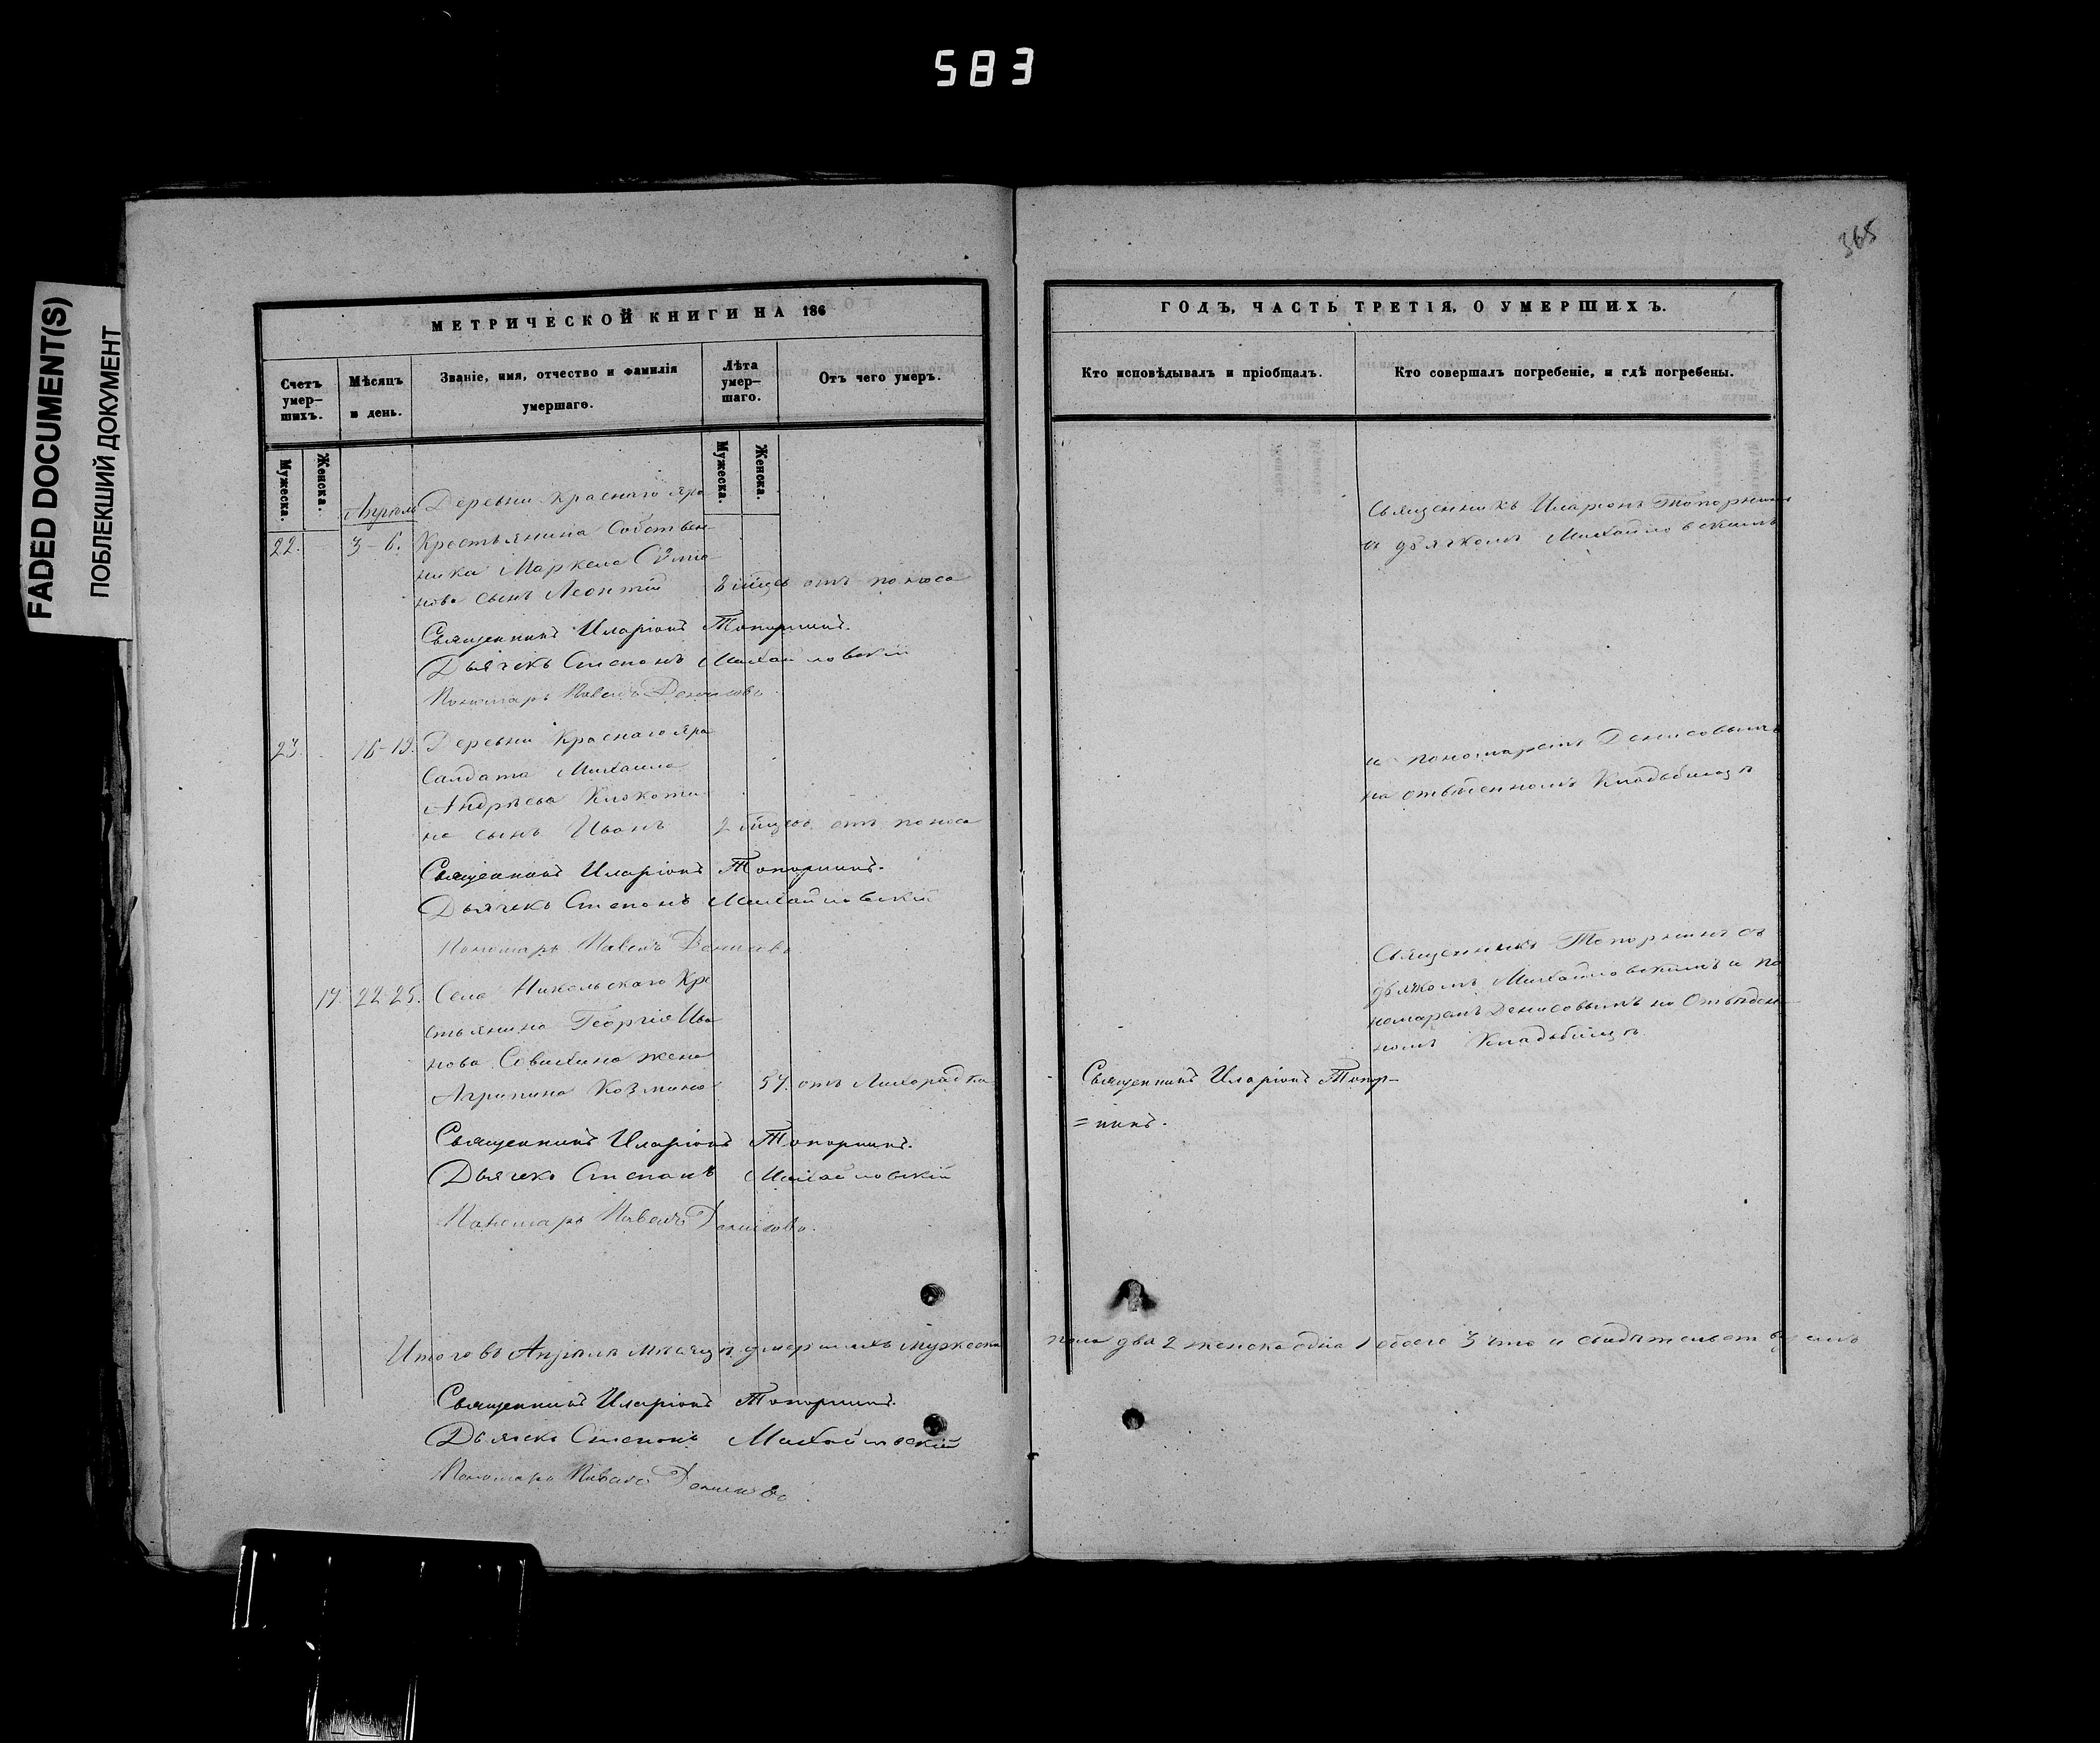 583
FADED DOCUMENT(S)
ПОБЛЕКШИЙ ДОКУМЕНТ
365
МЕТРИЧЕСКОЙ КНИГИ НА 186
Счетъ умер–шихъ.
Мѣсяцъ и день.
Званіе, имя, отчество и фамилія умершаго.
Лѣта умер–шаго.
Отъ чего умеръ.
Мужеска.
Женска.
Мужеска.
Женска.
Апрѣль Деревни Краснаго Яра
22. 3-6. Крестьянина Собствен
ника Маркела
нова сынъ Леонтій отъ поноса
Священникъ Иларіонъ Топорнинъ.
Дьячекъ Степанъ Михайловскій
Пономарь Павелъ Денисовъ
23. Деревни Краснаго Яра
Салдата Михаила
Андрѣева Клокоти
на сынъ Иванъ 2 отъ поноса
Священникъ Иларіонъ Топорнинъ.
Дьячекъ Степанъ Михайловскій
Пономарь Павелъ Денисовъ.
22-25. Села Никольскаго Кре
стьянина Георгія Ива
нова жена
Агрипина Козмина 57. отъ Лихорадки
Священникъ Иларіонъ Топорнинъ.
Дьячекъ Степанъ Михайловскій
Пономарь Павелъ Денисовъ.
Итого въ Апрѣлѣ мѣсяцѣ умершихъ мужеска
Священникъ Иларіонъ Топорнинъ.
Дьячекъ Степанъ Михайловскій
Пономарь Павелъ Денисовъ.
ГОДЪ, ЧАСТЬ ТРЕТІЯ, О УМЕРШИХЪ.
Кто исповѣдывалъ и пріобщалъ.
Кто совершалъ погребеніе, и гдѣ погребены.
Священникъ Иларіонъ Топорнинъ
съ дьячкомъ Михайловскимъ
и пономаремъ Денисовымъ
на отведенномъ Кладбищѣ
Священникъ Топорнинъ съ
дьячкомъ Михайловскимъ и по
номаремъ Денисовымъ на Отведен
номъ Кладбищѣ
Священникъ Иларіонъ Топор–
=нинъ.
пола два 2 женска одна 1 обоего 3 что и свидѣтельствуемъ